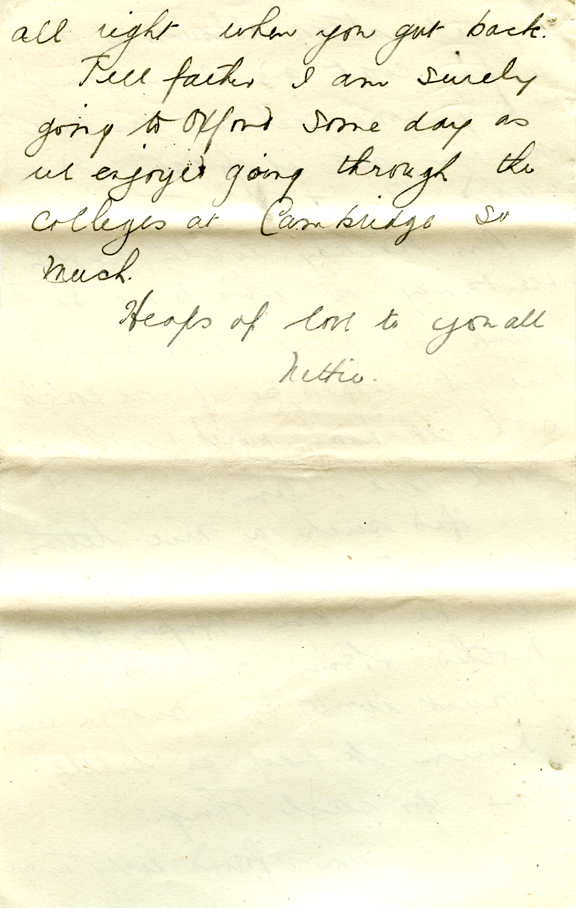 all right when you get back.
Tell father I am surely
going to Oxford some day as
we enjoyed going through the
colleges at Cambridge so
much.
Heaps of love to you all
Nettie.